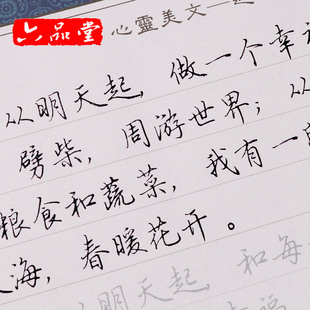 六品堂
心靈美文一
从明天起，做一个幸
劈柴，周游世界；从
粮食和蔬菜，我有一
大海，春暖花开。
从明天起，和每
幸福